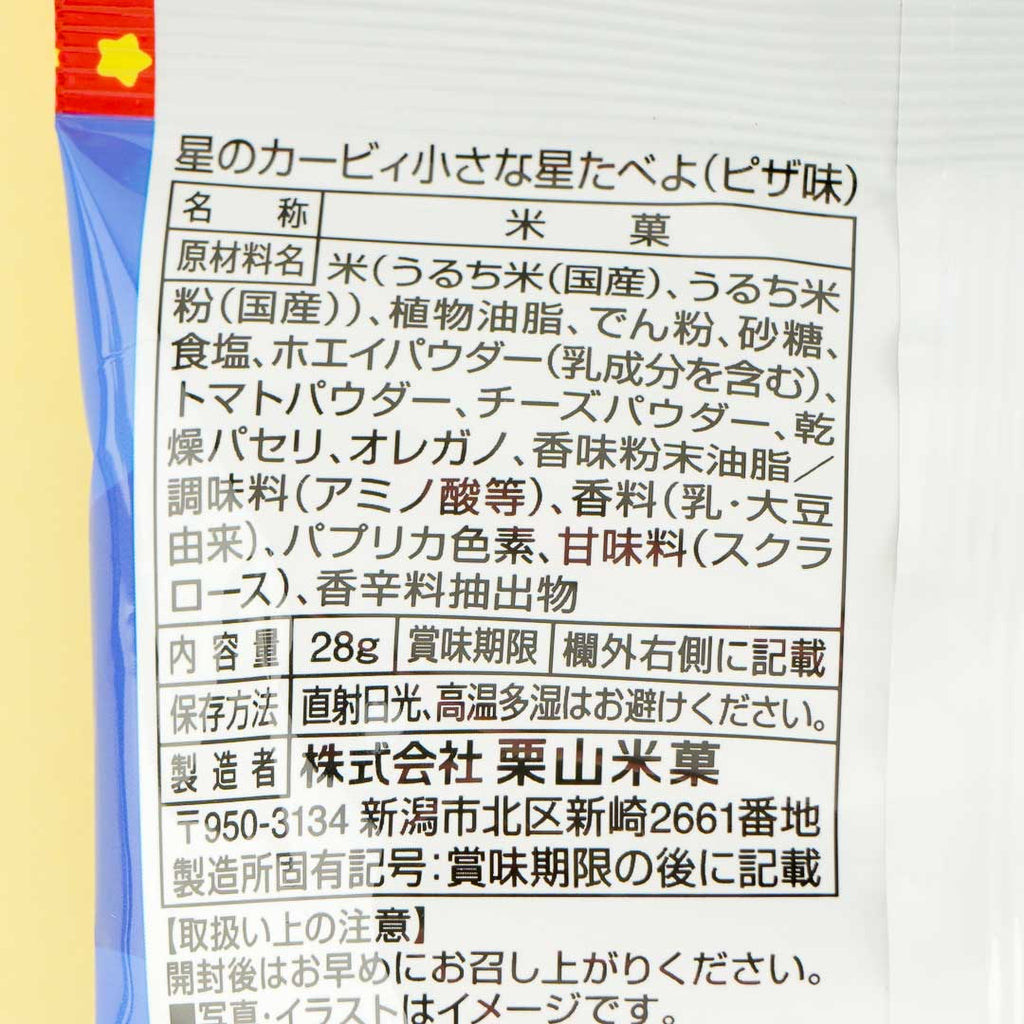 星のカービィ小さな星たべよ(ピザ味)
名称 米菓
原材料名 米(うるち米(国産)、うるち米
粉(国産))、植物油脂、でん粉、砂糖、
食塩、ホエイパウダー(乳成分を含む)、
トマトパウダー、チーズパウダー、乾
燥パセリ、オレガノ、香味粉末油脂/
調味料(アミノ酸等)、香料(乳・大豆
由来)、パプリカ色素、甘味料(スクラ
ロース)、香辛料抽出物
内容量 28g 賞味期限 欄外右側に記載
保存方法 直射日光、高温多湿はお避けください。
製造者 株式会社 栗山米菓
〒950-3134 新潟市北区新崎2661番地
製造所固有記号:賞味期限の後に記載
【取扱い上の注意】
開封後はお早めにお召し上がりください。
■写真・イラストはイメージです。